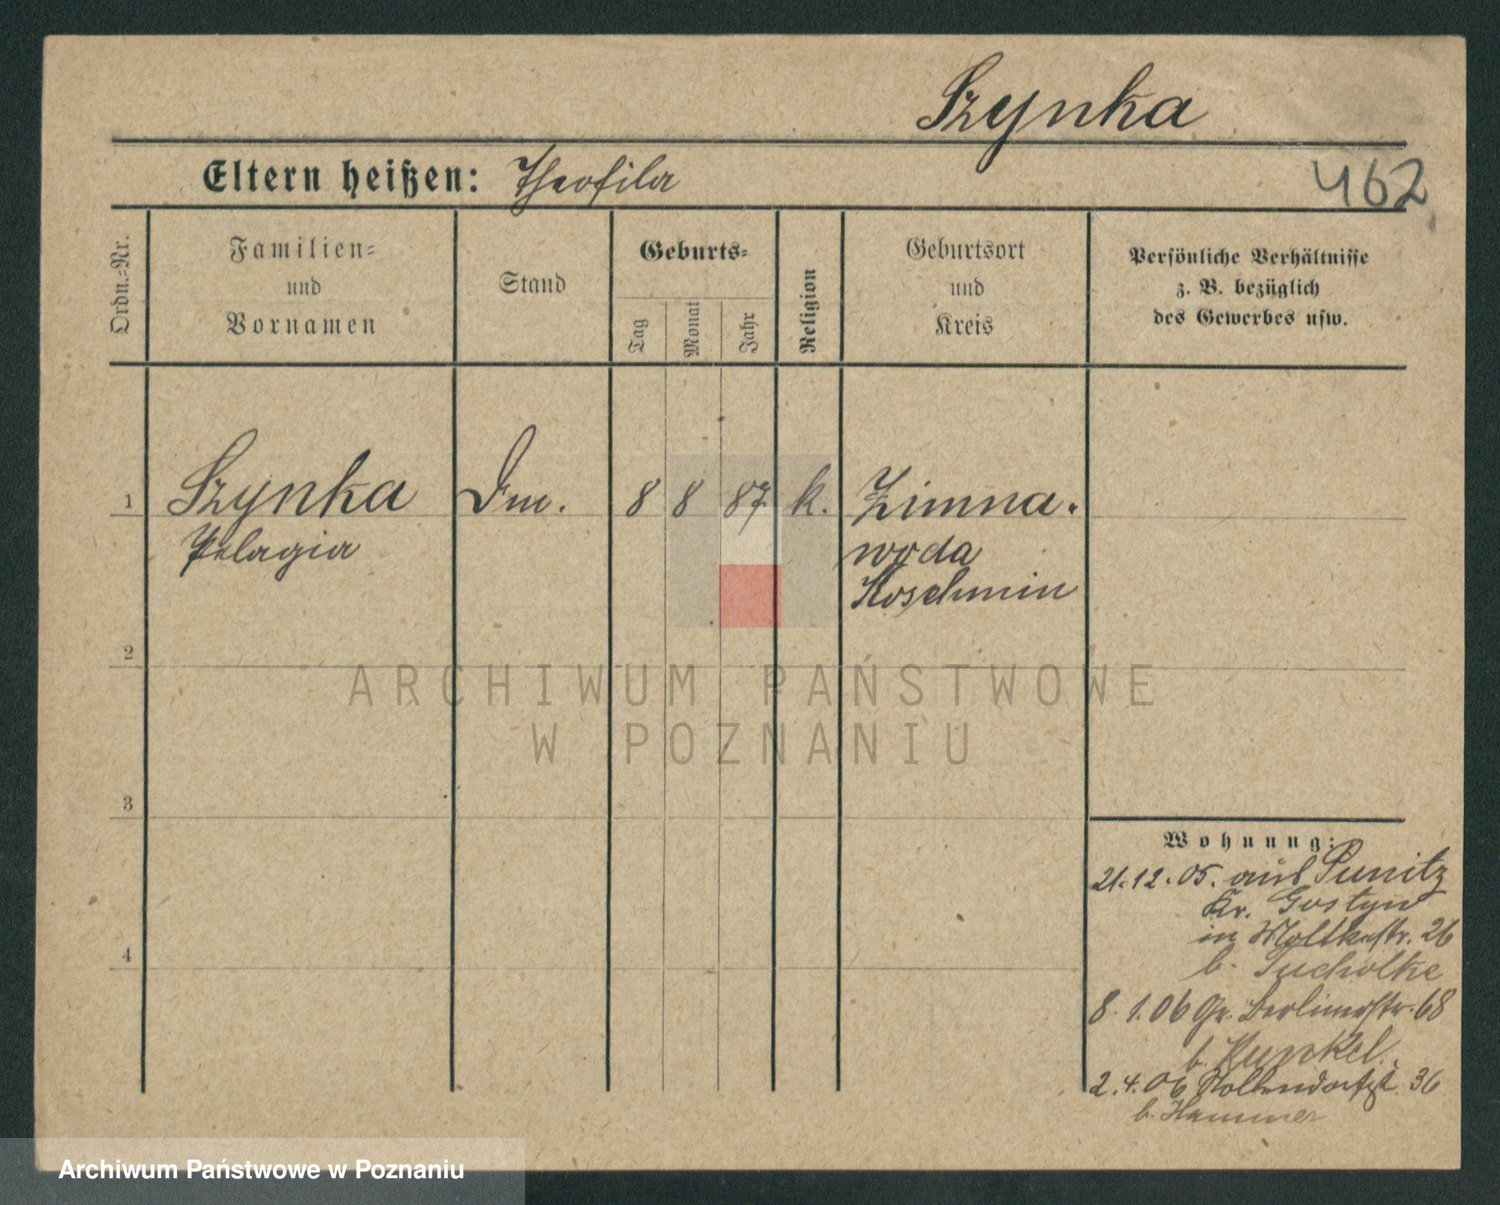 Szynka
Eltern heißen: Theofila
462
Ordn.-Nr.
Familien-
und
Vornamen
Stand
Geburts-
Tag
Monat
Jahr
Religion
Geburtsort
und
Kreis
Persönliche Verhältnisse
z. B. bezüglich
des Gewerbes usw.
1 Szynka Dm. 8 8 87 k. Zimna-
Pelagia woda
Koschmin
2
ARCHIWUM PAŃSTWOWE
W POZNANIU
3
Wohnung:
21.12.05. aus Punitz
Kr. Gostyn
in Moltkestr. 26
b. Sucholke
4
8.1.06 Gr. Berlinerstr. 68
b. Kunkel.
2.4.06 Nollendorfst. 36
b. Hammer
Archiwum Państwowe w Poznaniu